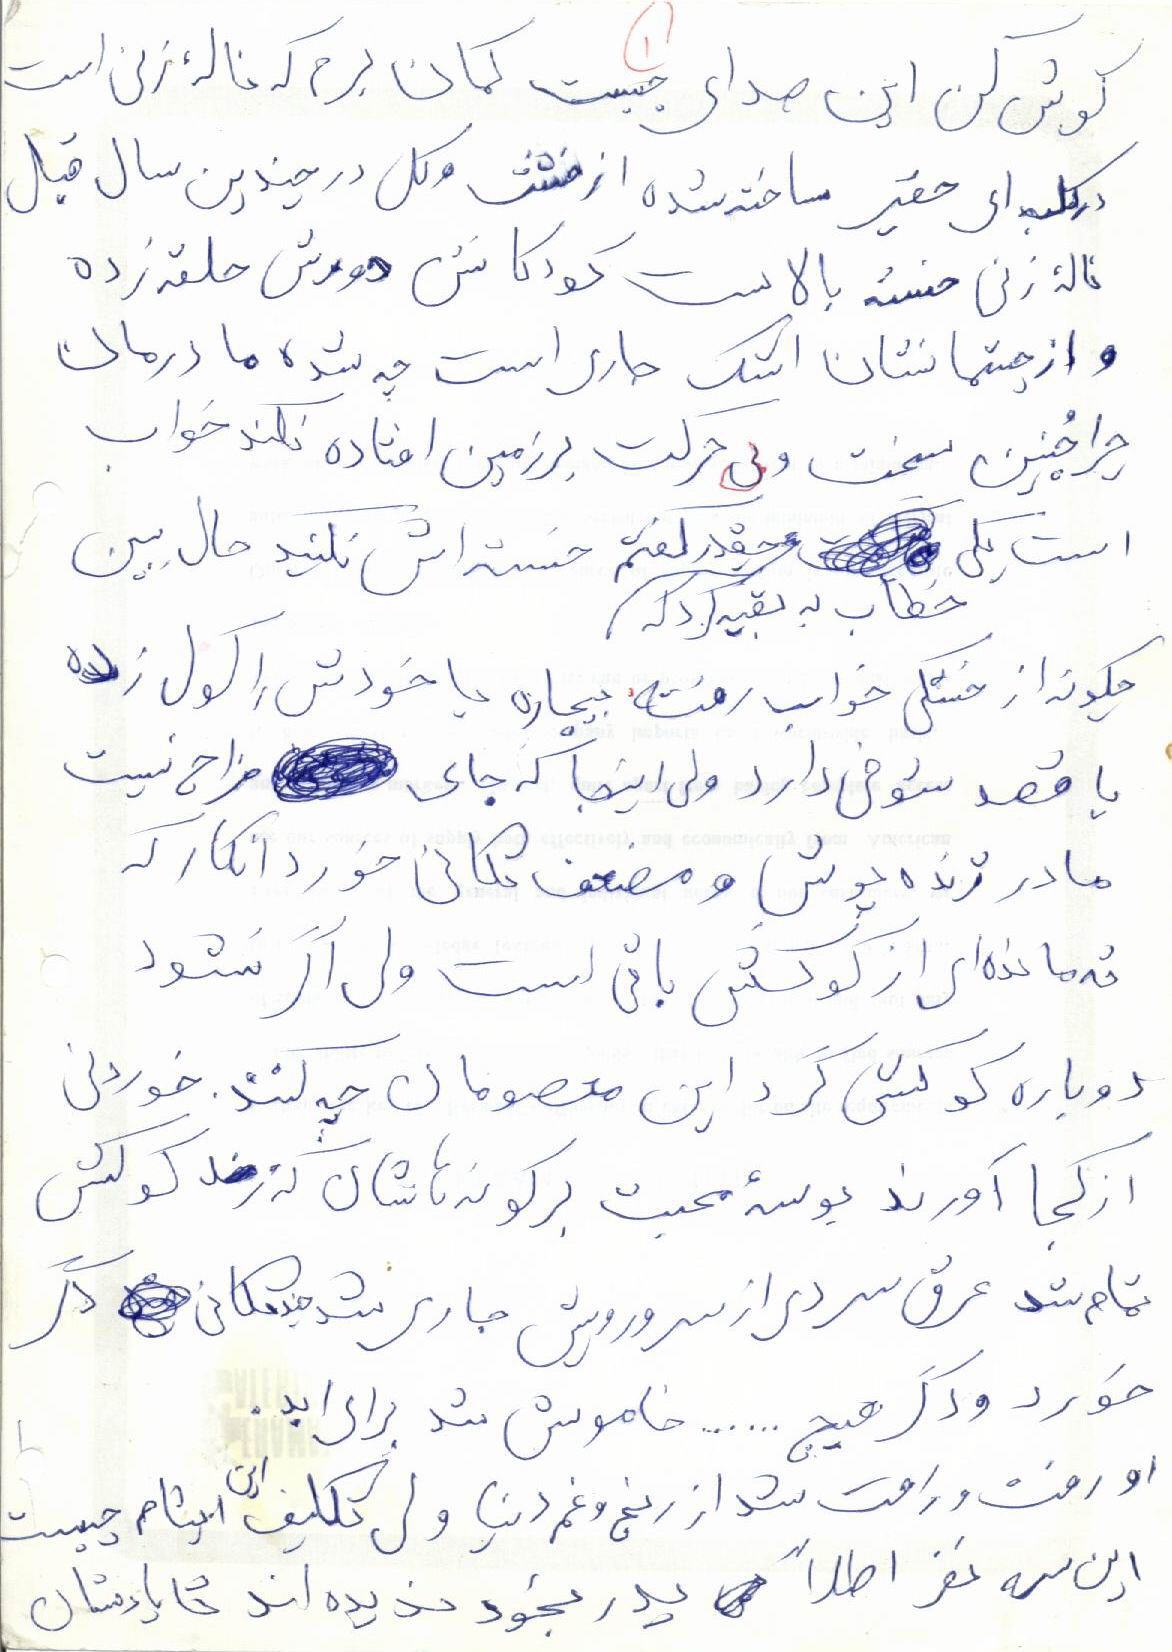 ۱
گوش کن این صدای چیست گمان برم که نالهٔ زنی است
در کلبه‌ای حقیر ساخته شده از خشت و گل در چندین سال قبل
نالهٔ زنی خسته بالاست کودکانش دورش حلقه زده
و از چشمانشان اشک جاری است چه شده مادرمان
چرا چُنین سخت و بی حرکت بر زمین افتاده نکند خواب
است یکی چقدر گفتم خسته اش نکنید حال ببین
خطاب به بقیه کرد که
چگونه از خستگی خواب رفته بیچاره یا خودش را گول زده
یا قصد شوخی دارد ولی اینجا که جای مزاح نیست
مادر ژنده پوش و ضعف تکانی خورد انگار که
ته مانده‌ای از کوکش باقی است ولی اگر نشود
دوباره کوکش کرد این معصومان چه کنند. خوردنی
از کجا آورند بوسهٔ محبت بر گونه هاشان که زند کوکش
تمام شد عرق سردی از سر و رویش جاری شد تکانی دگر
خورد و دگر هیچ ...... خاموش شد برای ابد.
او رفت و راحت شد از رنج و غم دنیا ولی تکلیف این ایتام چیست
این سه نفر اصلاً پدر بخود ندیده اند تا یادشان